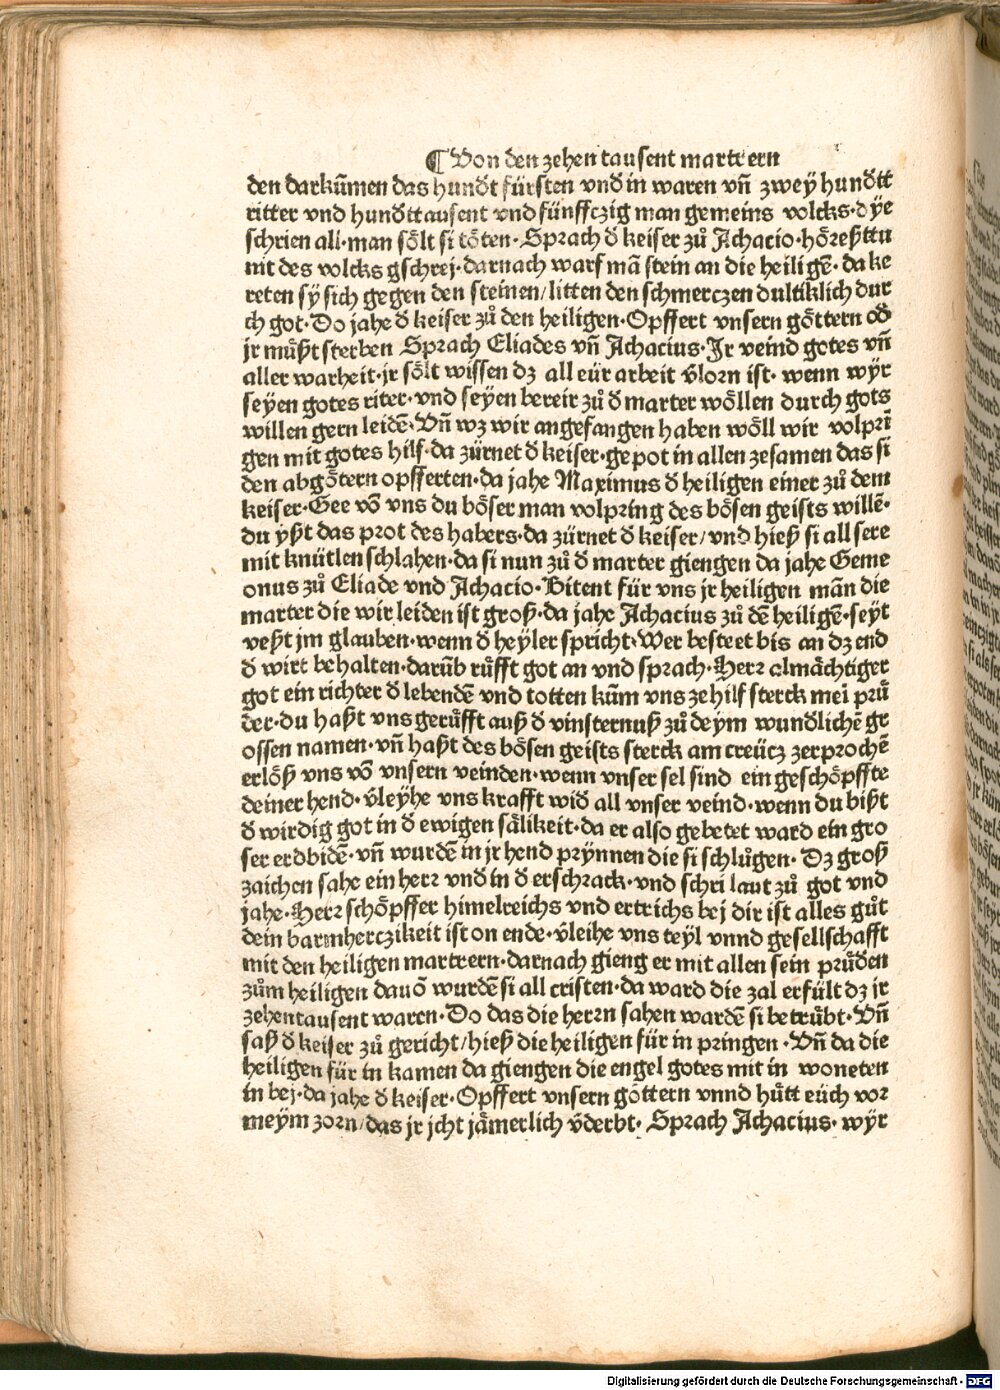 ¶ Von den zehen tausent martrern
den darkūmen das hundt fürsten vnd in waren vn̄ zwey hundtt
ritter vnd hundttausent vnd fünffczig man gemeins volcks·dÿe
schrien all·man sölt si töten·Sprach d̄ keiser zů Achacio·höreßttu
nit des volcks gschrej·darnach warf mā stein an die heiligē·da ke
reten sÿ sich gegen den steinen/litten den schmerczen dultiklich dur
ch got·Do jahe d̄ keiser zů den heiligen·Opffert vnsern göttern od̄
jr müßt sterben Sprach Eliades vn̄ Achacius·Ir veind gotes vn̄
aller warheit·jr sölt wissen dz all eür arbeit v̄lorn ist·wenn wÿr
seÿen gotes riter·vnd seÿen bereir zů d̄ marter wöllen durch gots
willen gern leidē·Vn̄ wz wir angefangen haben wöll wir volprī
gen mit gotes hilf·da zürnet d̄ keiser·gepot in allen zesamen das si
den abgöttern opfferten·da jahe Maximus d̄ heiligen einer zů dem
keiser·Gee vō vns du böser man volpring des bösen geists willē·
du ÿßt das prot des habers·da zürnet d̄ keiser/vnd hieß si all sere
mit knütlen schlahen·da si nun zů d̄ marter giengen da jahe Geme
onus zů Eliade vnd Achacio·Bitent für vns jr heiligen mān die
marter die wir leiden ist groß·da jahe Achacius zů dē heiligē·seyt
veßt jm glauben·wenn d̄ heÿler spricht·Wer besteet bis an dz end
d̄ wirt behalten·darūb růfft got an vnd sprach·Herr almächtiger
got ein richter d̄ lebendē vnd totten kūm vns ze hilf sterck mei prů
der·du haßt vns gerůfft auß d̄ vinsternuß zů deÿm wundlichē gr
ossen namen·vn̄ haßt des bösen geists sterck am creücz zerprochē
erlöß vns vō vnsern veinden·wenn vnser sel sind ein geschöpffte
deiner hend·v̄leÿhe vns krafft wid̄ all vnser veind·wenn du bißt
d̄ wirdig got in d̄ ewigen sälikeit·da er also gebetet ward ein gro
ser erdbidē·vn̄ wurdē in jr hend prÿnnen die si schlůgen·Dz groß
zaichen sahe ein herr vnd in d̄ erschrack·vnd schri laut zů got vnd
jahe·Herr schöpffer himelreichs vnd ertrichs bej dir ist alles gůt
dein barmherczikeit ist on ende·v̄leihe vns teÿl vnnd gesellschafft
mit den heiligen martrern·darnach gieng er mit allen sein průden
zům heiligen dauō wurdē si all cristen·da ward die zal erfült dz jr
zehentausent waren·Do das die herrn sahen wardē si betrůbt·Vn̄
saß d̄ keiser zů gericht/hieß die heiligen für in pringen·Vn̄ da die
heiligen für in kamen da giengen die engel gotes mit in woneten
in bej·da jahe d̄ keiser·Opffert vnsern göttern vnnd hütt eüch vor
meÿm zorn/das jr jcht jämerlich v̄derbt·Sprach Achacius·wÿr
Digitalisierung gefördert durch die Deutsche Forschungsgemeinschaft - DFG